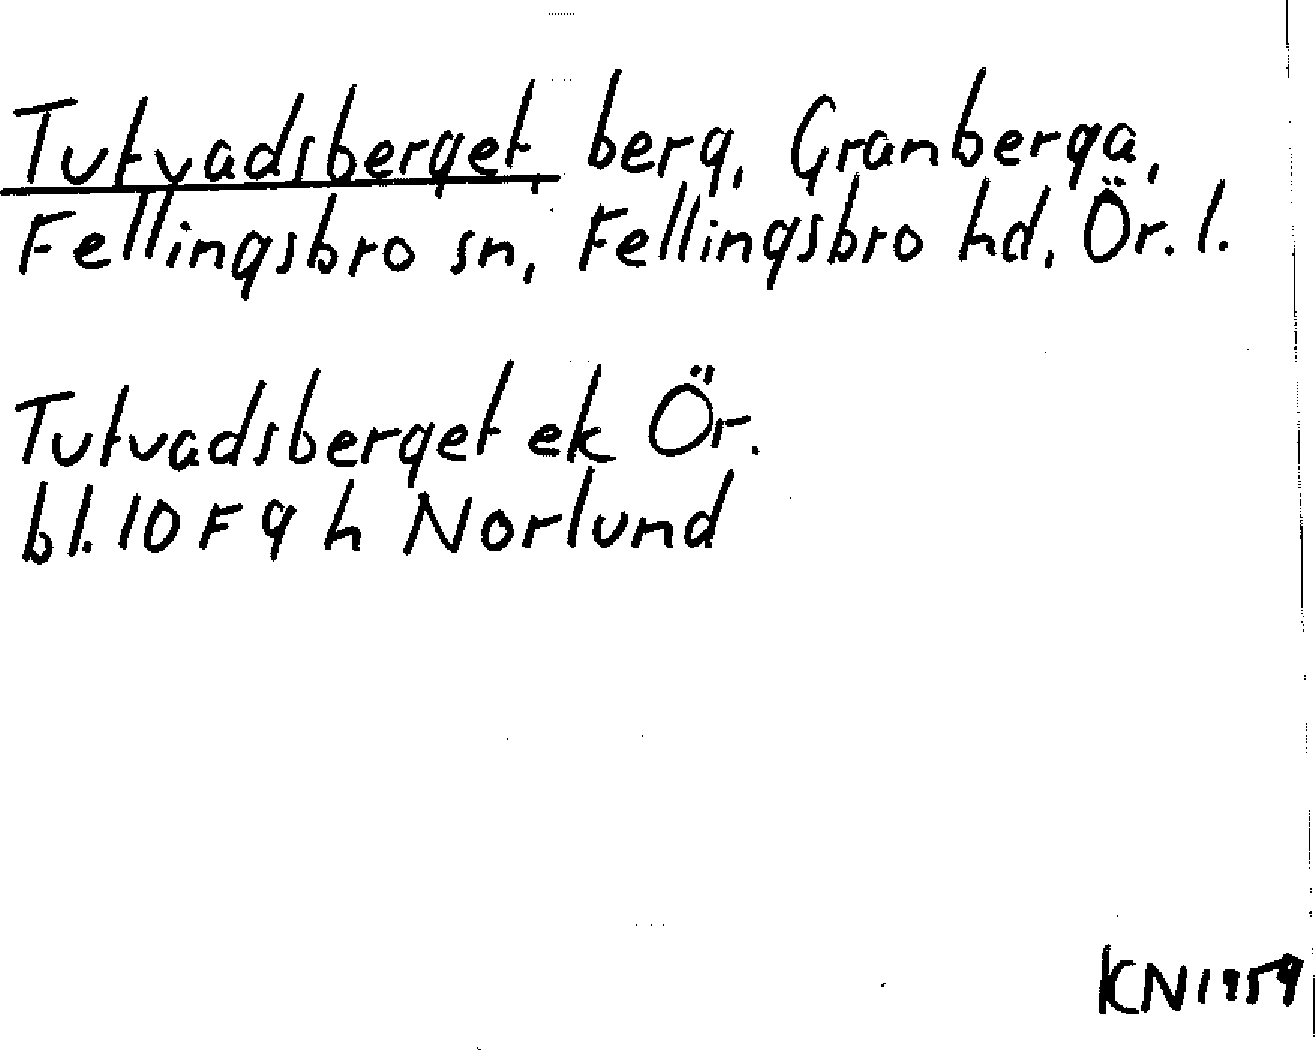 Tutvadsberget, berg, Granberga,
Fellingsbro sn, Fellingsbro hd, Ör. l.
Tutvadsberget ek Ör.
bl. 10 F 9 h Norlund
KN 1959